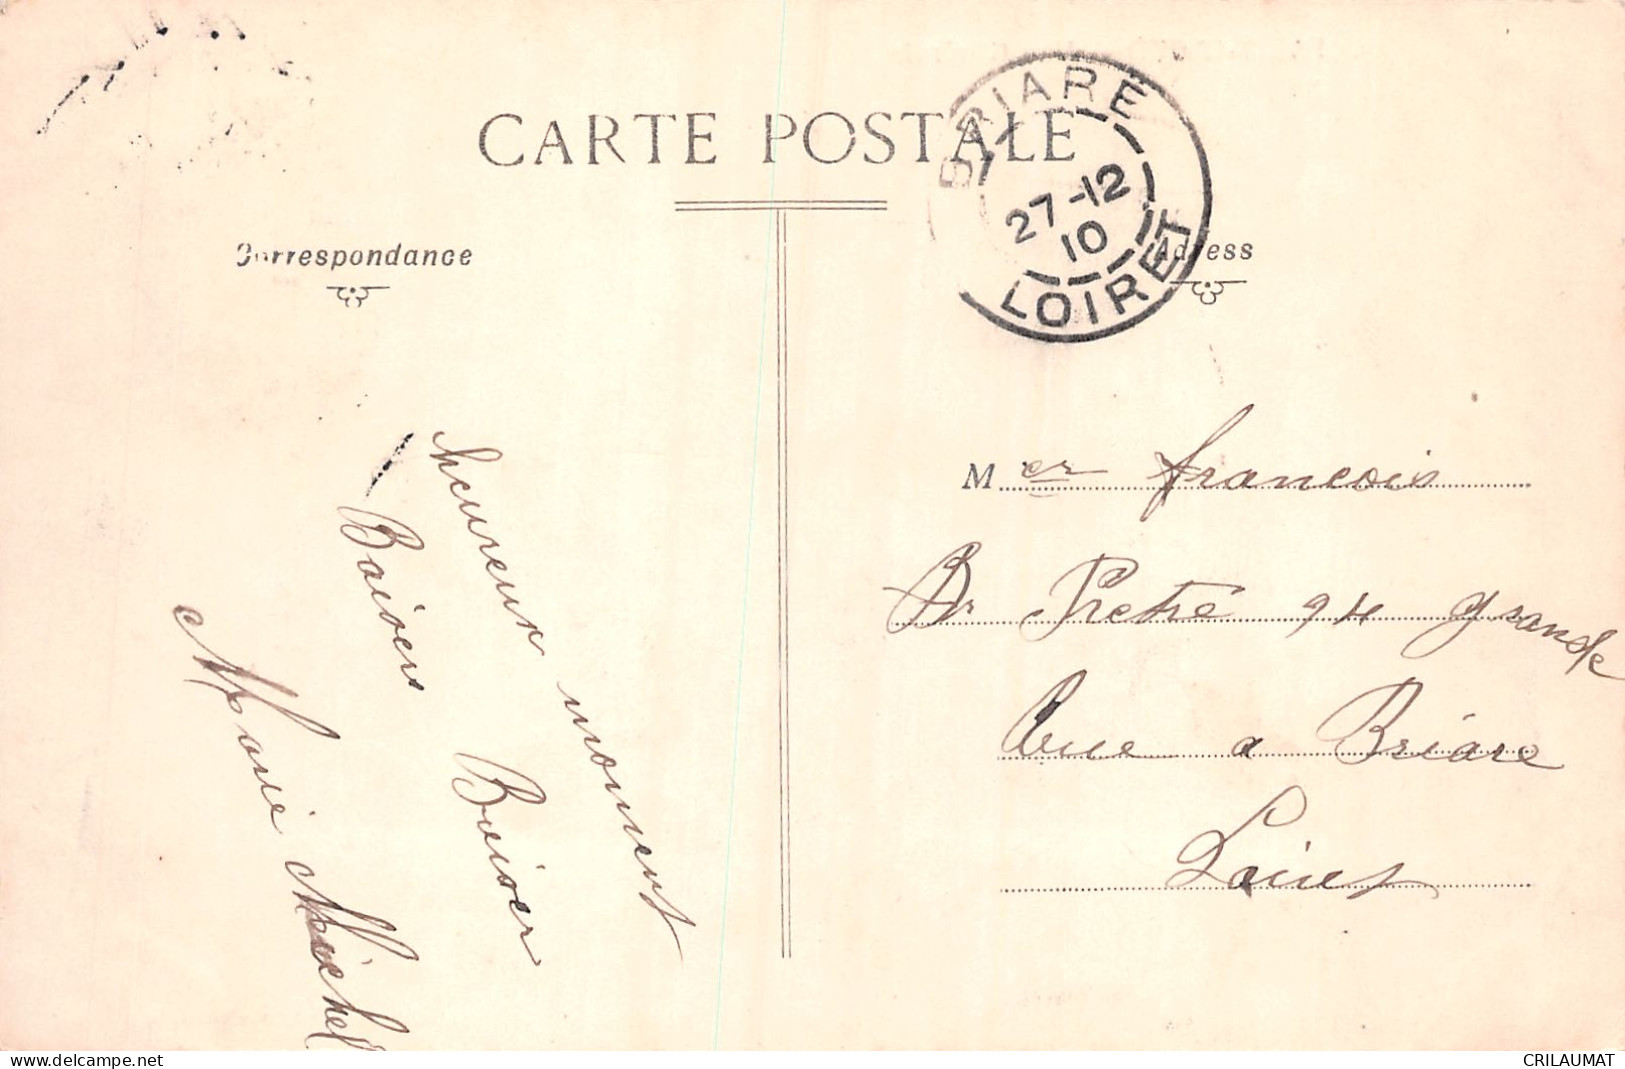 CARTE POSTALE
BRIARE
27-12
10
LOIRET
Correspondance
Adress
heureux moment
Baisers Baiser
Marie Michel
M er francois
Br Pretre 94 grande
Rue a Briare
Loiret
www.delcampe.net
CRILAUMAT